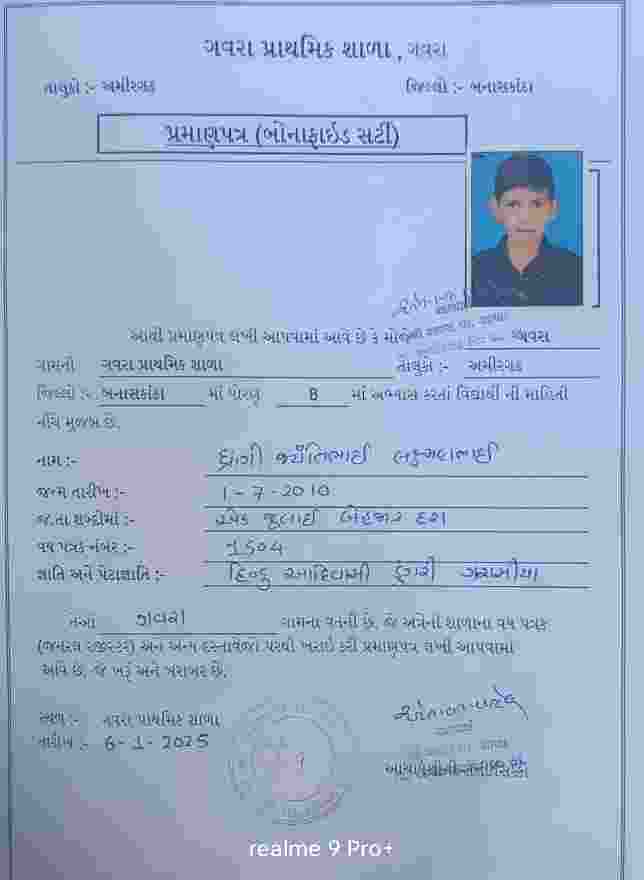 ગવરા પ્રાથમિક શાળા , ગવરા
તાલુકો :- અમીરગઢ જિલ્લો :- બનાસકાંઠા
પ્રમાણપત્ર (બોનાફાઇડ સર્ટી)
આથી પ્રમાણપત્ર લખી આપવામાં આવે છે કે મોજે ગવરા
ગામની ગવરા પ્રાથમિક શાળા તાલુકો :- અમીરગઢ
જિલ્લો :- બનાસકાંઠા માં ધોરણ 8 માં અભ્યાસ કરતાં વિદ્યાર્થી ની માહિતી
નીચે મુજબ છે.
નામ :- જયંતિભાઈ
જન્મ તારીખ :- 1-7-2010
જ.તા શબ્દોમાં :- એક જુલાઈ બેહજાર દશ
વય પત્રક નંબર :- 1504
જ્ઞાતિ અને પેટાજ્ઞાતિ :- હિન્દુ આદિવાસી ડુંગરી ગરાસીયા
તેઓ ગવરા ગામના વતની છે. જે અત્રેની શાળાના વય પત્રક
(જનરલ રજીસ્ટર) અને અન્ય દસ્તાવેજો પરથી ખરાઇ કરી પ્રમાણપત્ર લખી આપવામાં
આવે છે. જે ખરૂં અને બરાબર છે.
સ્થળ :- ગવરા પ્રાથમિક શાળા
તારીખ :- 6-1-2025
realme 9 Pro+